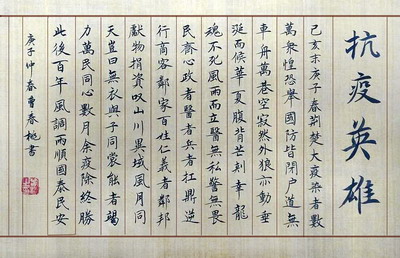 抗疫英雄
己亥末庚子春荆楚大疫染者數
萬衆惶恐舉國防皆閉户道無
車舟萬巷空寂然外狼亦動垂
涎而候華夏腹背芒刺幸龍
魂不死風雨而立醫無私警無畏
民齋心政者醫者兵者扛鼎逆
行商客鄰家百姓仁義者鄰邦
獻物捐資叹山川異域風月同
天豈曰無衣與子同裳能者竭
力萬民同心數月余疫除終勝
此後百年風調雨順國泰民安
庚子仲春曹春桃書